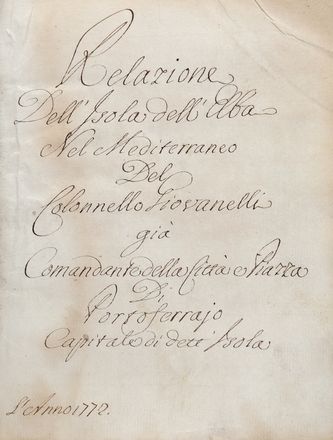 Relazione
Dell' Isola dell' Elba
Nel Mediterraneo
Del
Colonnello Giovanelli
già
Comandante della Città e Piazza
Di
Portoferrajo
Capitale di dett' Isola
L'Anno 1772.